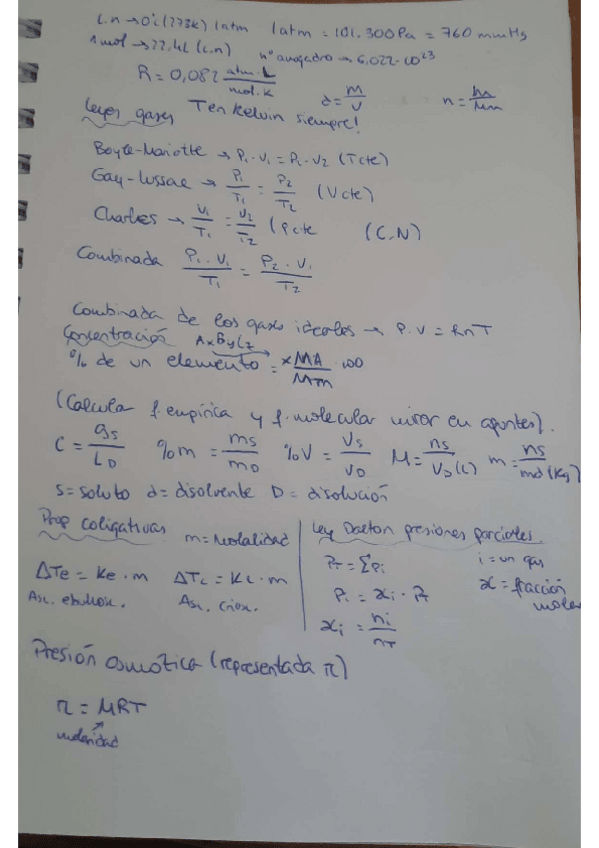 C.n → 0°C (273K) 1atm 1atm = 101.300 Pa = 760 mmHg
1 mol → 22,4L (C.n) nº avogadro → 6,022·10²³
R = 0,082 atm·L / mol·K d = m/V n = m/Mm
Leyes gases T en Kelvin siempre!
Boyle-Mariotte → P₁·V₁ = P₁·V₂ (Tcte)
Gay-Lussac → P₁/T₁ = P₂/T₂ (Vcte)
Charles → V₁/T₁ = V₂/T₂ (Pcte (C.N)
Combinada P₁·V₁/T₁ = P₂·V₁/T₂
Combinada de los gases ideales → P.V = RnT
Concentración AxByCz
% de un elemento = x MA/Mm · 100
(Calcular f. empírica y f. molecular mirar en apuntes).
C = gs/LD %m = ms/mD %V = Vs/VD M = ns/VD(L) m = ns/md(Kg)
s = soluto d = disolvente D = disolución
Prop coligativas m = Molalidad
ΔTe = Ke · m ΔTc = Kc · m
Asc. ebullosc. Asc. criosc.
Ley Dalton presiones parciales.
PT = ΣPi i = un gas
Pi = xi · PT x = fracción molar
xi = ni/nT
Presión osmótica (representada π)
π = MRT
molaridad